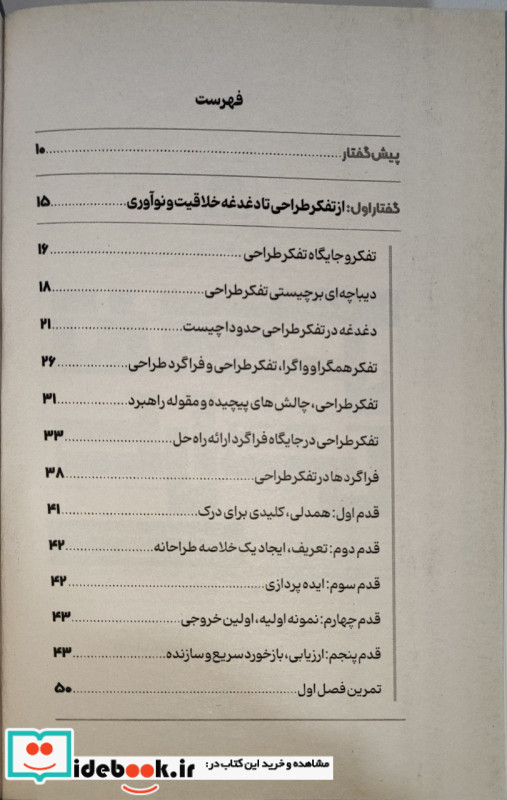 فهرست
پیش گفتار ........ ۱۰
گفتار اول: از تفکر طراحی تا دغدغه خلاقیت و نوآوری ........ ۱۵
تفکر و جایگاه تفکر طراحی ........ ۱۶
دیباچه‌ای بر چیستی تفکر طراحی ........ ۱۸
دغدغه در تفکر طراحی حدودا چیست ........ ۲۱
تفکر همگرا و واگرا، تفکر طراحی و فراگرد طراحی ........ ۲۶
تفکر طراحی، چالش‌های پیچیده و مقوله راهبرد ........ ۳۱
تفکر طراحی در جایگاه فراگرد ارائه راه حل ........ ۳۳
فراگردها در تفکر طراحی ........ ۳۸
قدم اول: همدلی، کلیدی برای درک ........ ۴۱
قدم دوم: تعریف، ایجاد یک خلاصه طراحانه ........ ۴۲
قدم سوم: ایده پردازی ........ ۴۲
قدم چهارم: نمونه اولیه، اولین خروجی ........ ۴۳
قدم پنجم: ارزیابی، بازخورد سریع و سازنده ........ ۴۳
تمرین فصل اول ........ ۵۰
مشاهده و خرید این کتاب در:
idebook.ir